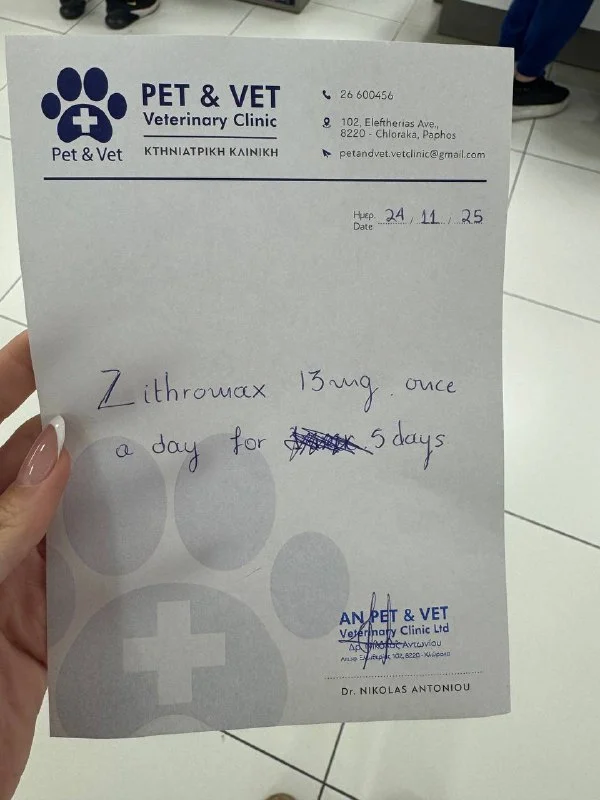 PET & VET
Veterinary Clinic
ΚΤΗΝΙΑΤΡΙΚΗ ΚΛΙΝΙΚΗ
Pet & Vet
26 600456
102, Eleftherias Ave.,
8220 - Chloraka, Paphos
petandvet.vetclinic@gmail.com
Ημερ.
Date 24 / 11 / 25
Zithromax 13mg once
a day for 5 days
AN PET & VET
Veterinary Clinic Ltd
Αντωνίου
102, 8220 - Χλώρακα
Dr. NIKOLAS ANTONIOU